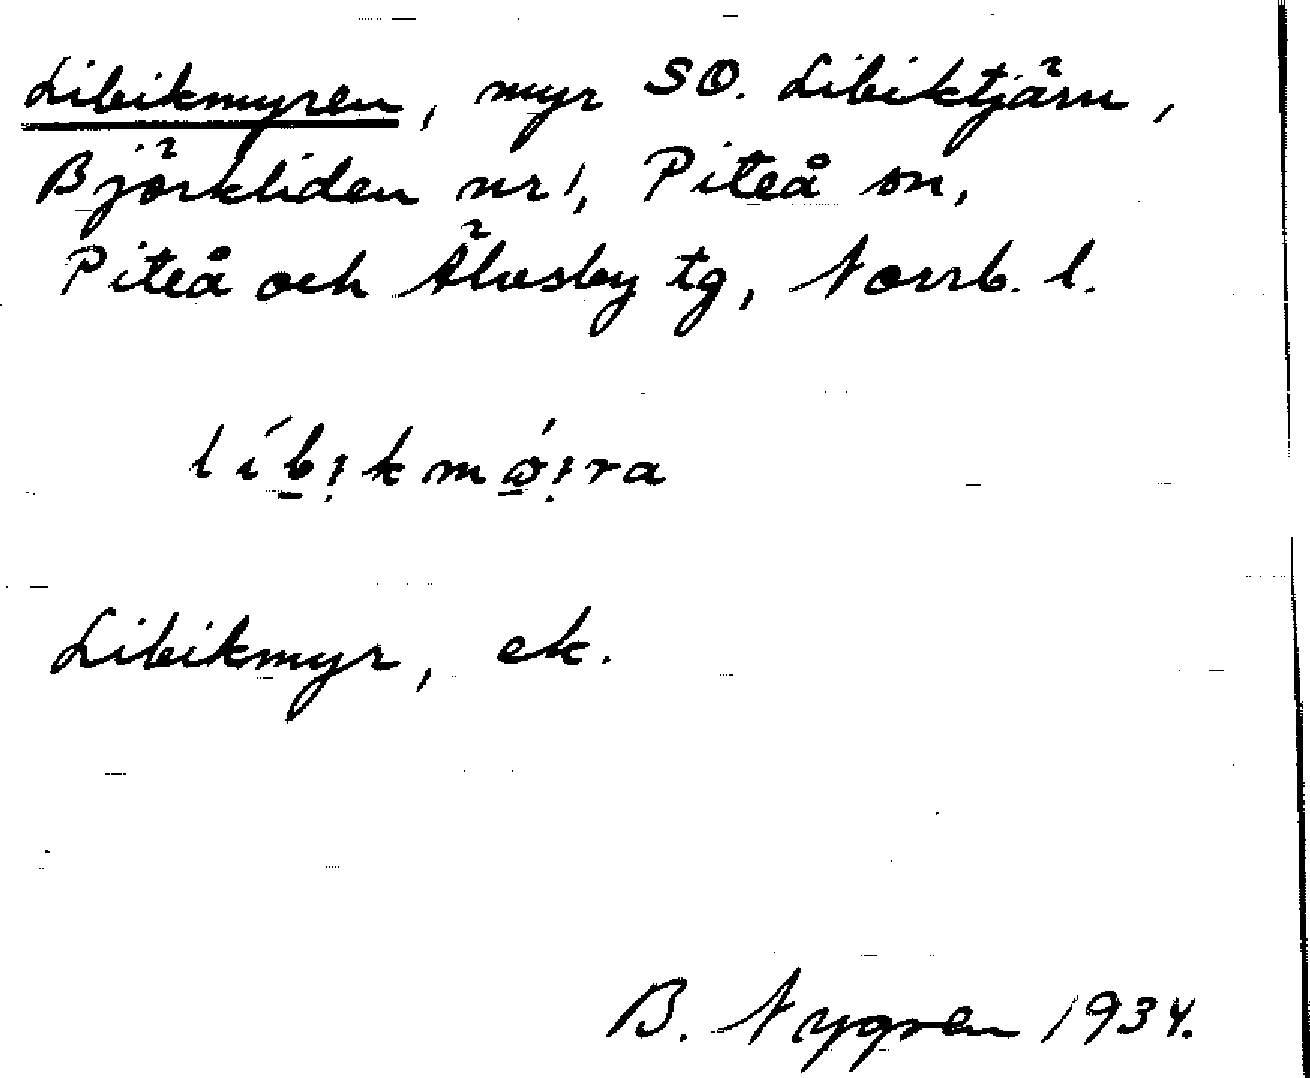 Libikmyren, myr SO. Libiktjärn,
Björkliden nr 1, Piteå sn,
Piteå och Älvsby tg, Norrb. l.
Libikmyr, ek.
B. Nygren 1934.